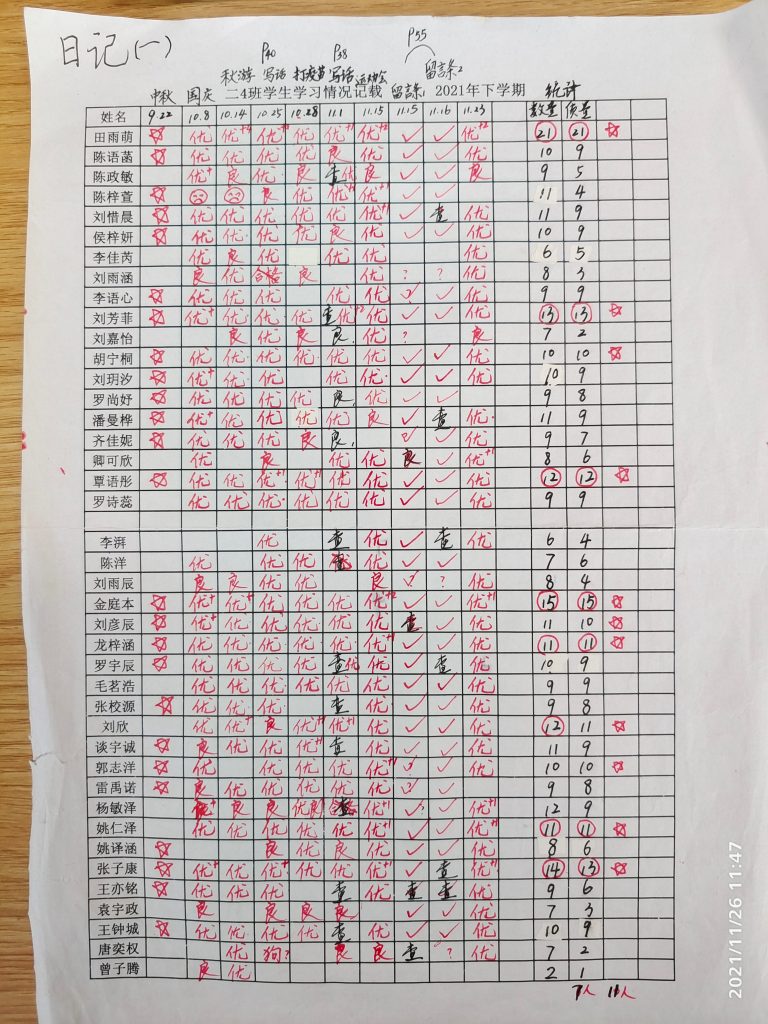 日记(一)
P40 P38 P55
秋游 写话 打疫苗 写话 运动会 留言条2
中秋 国庆 二4班学生学习情况记载 留言条1 2021年下学期 统计
姓名 9.22 10.8 10.14 10.25 10.28 11.1 11.15 11.15 11.16 11.23 数量 质量
田雨萌 ☆ 优 优+4 优 优 优 优+2 ✓ ✓ 优+2 21 21 ☆
陈语菡 ☆ 优 优 优 优 良 优 ✓ ✓ 优 10 9
陈政敏 优+ 良 优 良 查优 良 ✓ ✓ 良 9 5
陈梓萱 ☆ 良 优 优+1 优+1 ✓ ✓ 11 4
刘惜晨 ☆ 优 优 优 优 优 优+1 ✓ 查 优 11 9
侯梓妍 ☆ 优 优 优 优 良 优 ✓ ✓ 优 10 9
李佳芮 优 良 优 优 优 优 6 5
刘雨涵 良 优 合格 良 ? ? 优 8 3
李语心 ☆ 优 优 优 优 优 ✓ ✓ 优 9 9
刘芳菲 ☆ 优+ 优 优 优 查优+2 优 ✓ ✓ 优 13 13 ☆
刘嘉怡 良 优 良 良 优 ? 良 7 2
胡宁桐 ☆ 优 优 优 优 优 优 ✓ ✓ 优 10 10 ☆
刘玥汐 ☆ 优+ 优 优 优 优 ✓ ✓ 优 10 9
罗尚妤 ☆ 优 优 优 优 良 优 ✓ ✓ 9 8
潘曼桦 ☆ 优+ 优 优 优 优 良 ✓ 查 优 11 9
齐佳妮 ☆ 优 优 优 良 良 ✓ ✓ 优 9 7
卿可欣 优 良 优 优 良 ✓ 优+1 8 6
覃语彤 ☆ 优 优 优+1 优+1 优 优 ✓ ✓ 优 12 12 ☆
罗诗蕊 优 优 优 优 优 优 ✓ ✓ 优 9 9
李湃 优 查 优 ✓ 查 优 6 4
陈洋 优 优 优 优 ✓ ✓ 7 6
刘雨辰 良 良 优 优 良 ✓ ? 优 8 4
金庭本 ☆ 优+ 优+ 优 优 优 优+2 ✓ ✓ 优+1 15 15 ☆
刘彦辰 ☆ 优+ 优 优 优 优 优 查 ✓ 优 11 10 ☆
龙梓涵 ☆ 优 优 优 优 优 优+1 ✓ ✓ 优 11 11 ☆
罗宇辰 ☆ 优 优 优 优 查优 优 ✓ 查 优 10 9
毛茗浩 优 优 优 优 优 优 ✓ ✓ 优 9 9
张校源 ☆ 优 优 优 查 优 ✓ ✓ 优 9 8
刘欣 优 优+ 良 优+1 优+1 优 ✓ ✓ 优 12 11 ☆
谈宇诚 ☆ 良 优 优 优+1 查 优 ✓ ✓ 优 11 9
郭志洋 ☆ 优 优 优 优 优+1 ✓ ✓ 优 10 10 ☆
雷禹诺 ☆ 良 优 优 优 优 优 ✓ ✓ 9 8
杨敏泽 优+ 良 良 优良 优+1 ✓ ✓ 优+1 12 9
姚仁泽 优 优 优 优 优 优+1 ✓ ✓ 优+1 11 11 ☆
姚译涵 ☆ 良 优 良 优 ✓ ✓ 优 8 6
张子康 ☆ 优+ 优+ 优+ 优 优 优+1 ✓ 查 优+1 14 13 ☆
王亦铭 ☆ 优 优 优 查 优 查 查 优 9 6
袁宇政 良 良 良 良 ✓ ✓ 优 7 3
王钟城 ☆ 优 优 优 优 查 优 ✓ ✓ 优 10 9
唐奕权 优 狗? 良 良 查 ? 优 7 2
曾子腾 良 优 2 1
7人 11人
2021/11/26 11:47